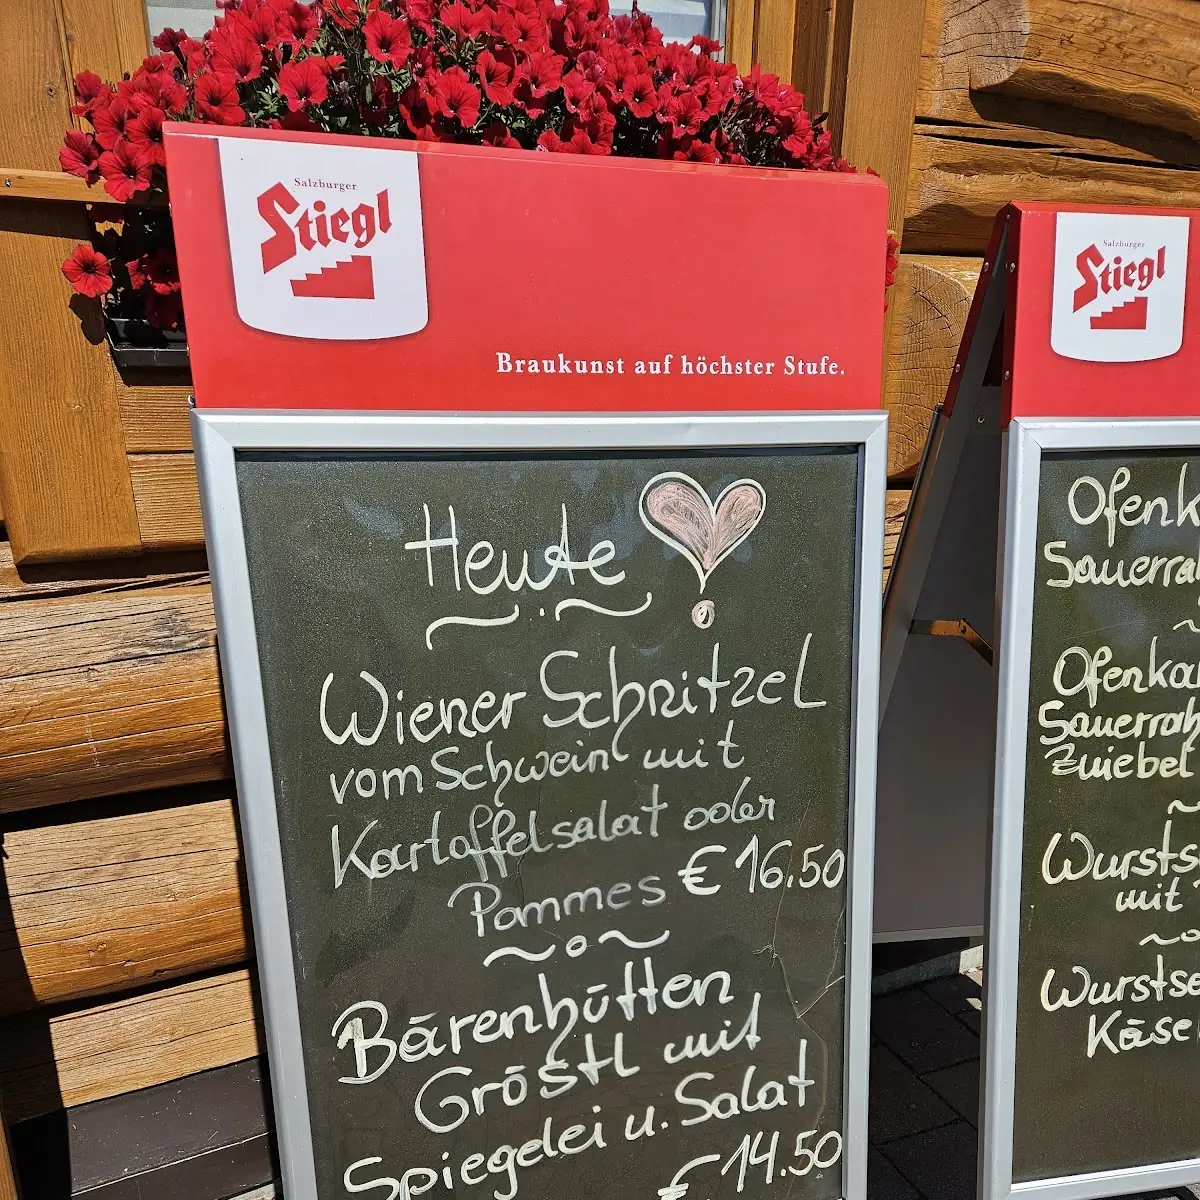 Salzburger
Stiegl
Braukunst auf höchster Stufe.
Heute
Wiener Schnitzel
vom Schwein mit
Kartoffelsalat oder
Pommes € 16.50
Bärenhütten
Gröstl mit
Spiegelei u. Salat
€ 14.50
Salzburger
Stiegl
Zwiebel
mit
Käse